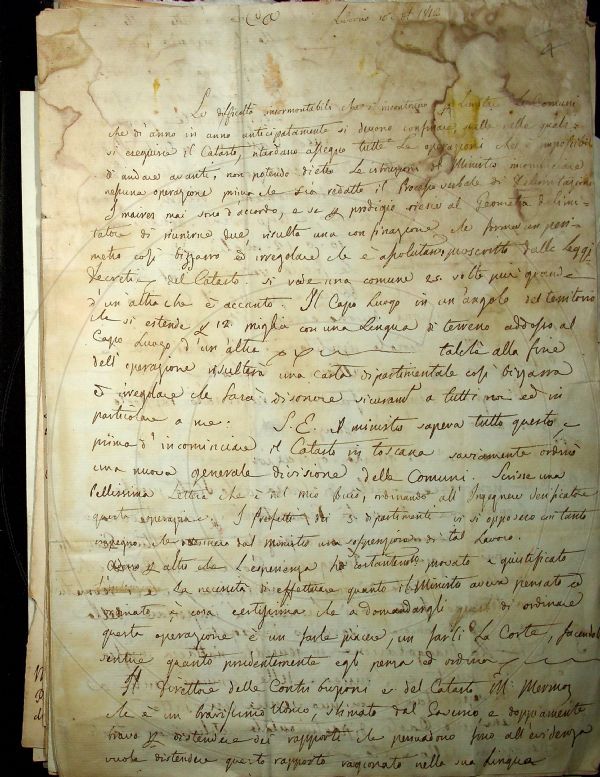 Livorno 10 1812
Le difficoltà insormontabili che s'incontrano Comuni
che di anno in anno anticipatamente si devono confinare,
si eseguisce il Catasto, ritardano tutte le operazioni
di andare avanti, non potendo dietro Le istruzioni del Ministro incominciare
nessuna operazione prima che sia redatto il Processo verbale di Delimitazione
I maires mai sono d'accordo, e se p prodigio riesce al Geometra delimi-
tatore di riunirne due, risulta una confinazione, che forma un peri-
metro così bizzarro ed irregolare che è proscritto dalle Leggi
Decreti del Catasto. si vede una comune 25. volte più grande
d'un altra che è accanto. Il Capo Luogo in un'angolo del territorio
che si estende p 12 miglia con una Lingua di terreno addosso al
Capo Luogo d'un'altra. talchè alla fine
dell'operazione risulterà una carta dipartimentale così bizzarra
ed irregolare che farà disonore a tutti noi ed in
particolare a me: S. E. il ministro sapeva tutto questo, e
prima d'incominciare il Catasto in toscana saviamente ordinò
una nuova generale divisione delle Comuni. Scrisse una
Bellissima Lettera che è nel mio ordinando all'Ingegnere Verificatore
questa operazione. I Prefetti dei 3 dipartimenti vi si opposero con tanto
impegno che dal Ministro una sospensione di tal Lavoro.
altro che L'esperienza ha costantemente provato e giustificato
La necessità di effettuare quanto il Ministro aveva pensato ed
ordinato è cosa certissima che a domandargli di ordinare
questa operazione è un farle piacere, un farli La Corte, facendoli
sentire quanto prudentemente egli pensa ed ordina
Il Direttore delle Contribuzioni e del Catasto Mr Mermoz
che è un bravissimo Uomo, stimato dal Governo e doppiamente
bravo p distendere dei rapporti che persuadono fino all'evidenza
vuole distendere questo rapporto ragionato nella sua Lingua